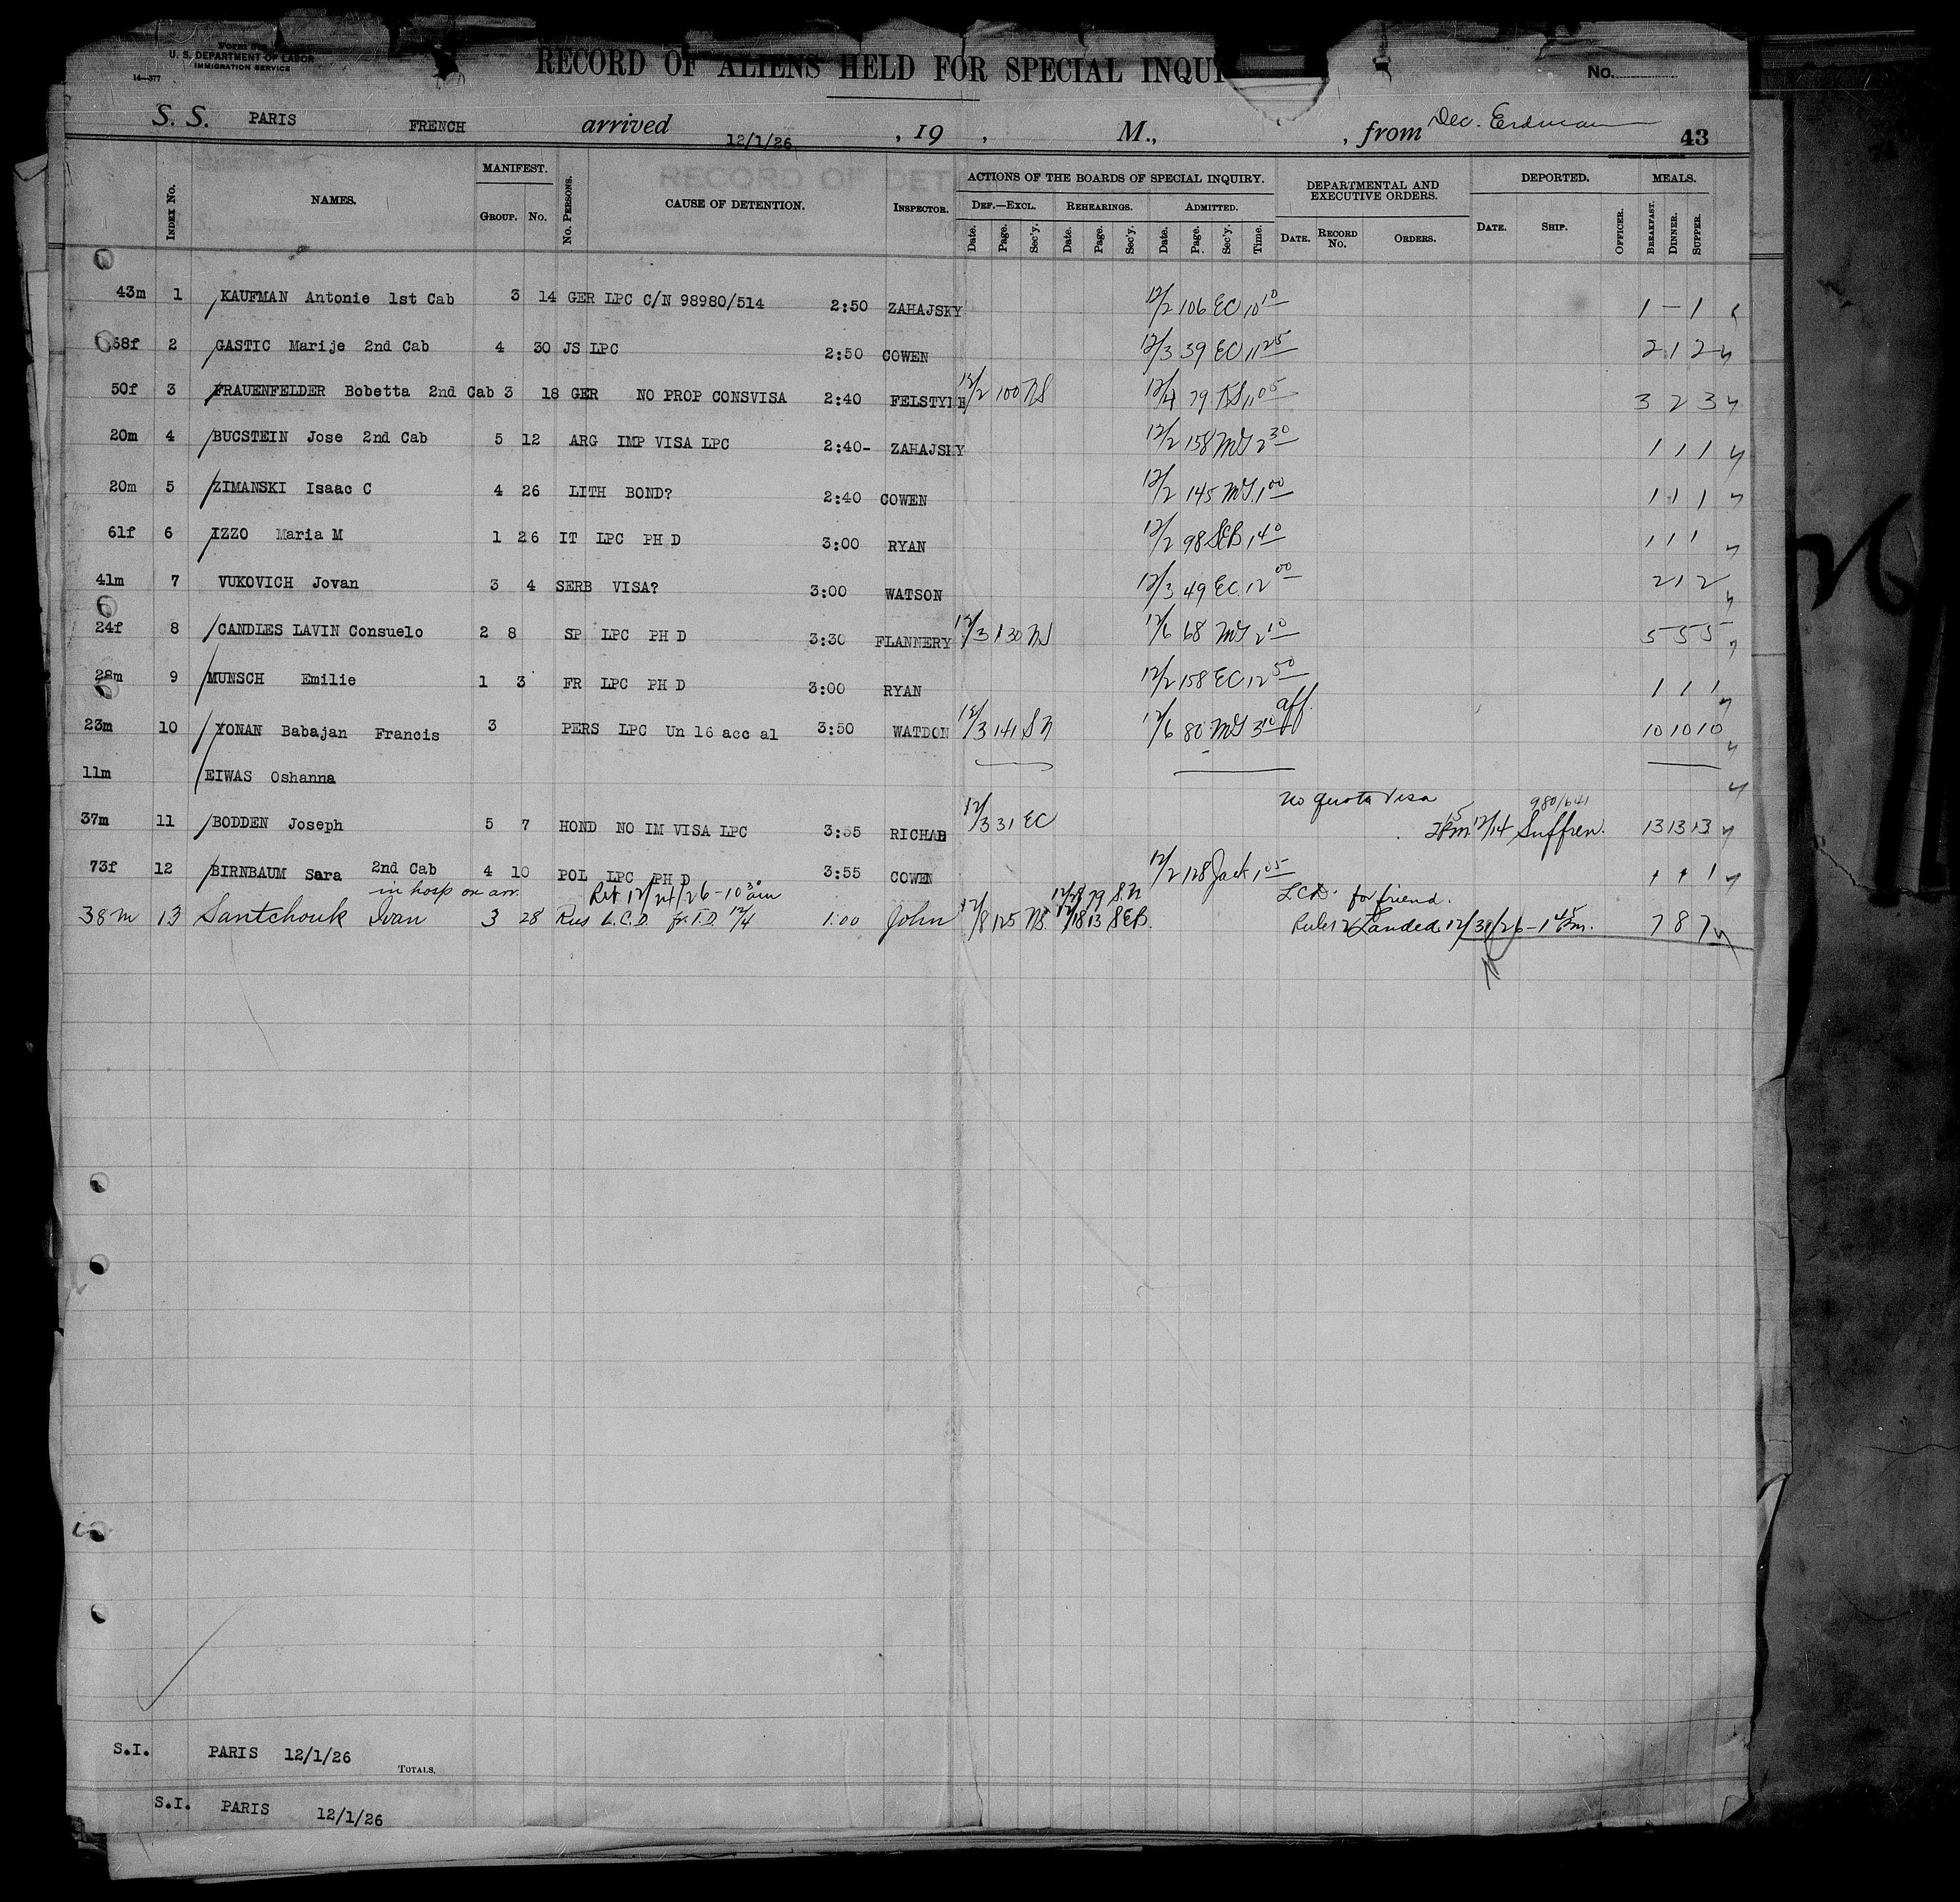 U. S. DEPARTMENT OF LABOR
IMMIGRATION SERVICE
14—377
RECORD OF ALIENS HELD FOR SPECIAL INQUI
No.
S. S. PARIS FRENCH arrived 12/1/26 , 19 , M., , from Dec. Erdman 43
RECORD OF DET
INDEX No. NAMES. MANIFEST. GROUP. No. No. PERSONS. CAUSE OF DETENTION. INSPECTOR. ACTIONS OF THE BOARDS OF SPECIAL INQUIRY. DEF.—EXCL. Date. Page. Sec'y. REHEARINGS. Date. Page. Sec'y. ADMITTED. Date. Page. Sec'y. Time. DEPARTMENTAL AND EXECUTIVE ORDERS. DATE. RECORD No. ORDERS. DEPORTED. DATE. SHIP. OFFICER. MEALS. BREAKFAST. DINNER. SUPPER.
43m 1 KAUFMAN Antonie 1st Cab 3 14 GER LPC C/N 98980/514 2:50 ZAHAJSKY 12/2 106 EC 10 10 1 - 1
68f 2 GASTIC Marije 2nd Cab 4 30 JS LPC 2:50 COWEN 12/3 39 EC 11 25 2 1 2
50f 3 FRAUENFELDER Bobetta 2nd Cab 3 18 GER NO PROP CONSVISA 2:40 FELSTYNE 12/2 100 NS 12/4 79 NS 11 05 3 2 3
20m 4 BUCSTEIN Jose 2nd Cab 5 12 ARG IMP VISA LPC 2:40- ZAHAJSKY 12/2 158 MG 2 30 1 1 1
20m 5 ZIMANSKI Isaac C 4 26 LITH BOND? 2:40 COWEN 12/2 145 MG 1 00 1 1 1
61f 6 IZZO Maria M 1 26 IT LPC PH D 3:00 RYAN 12/2 98 SEB 1 40 1 1 1
41m 7 VUKOVICH Jovan 3 4 SERB VISA? 3:00 WATSON 12/3 49 EC 12 00 2 1 2
24f 8 CANDLES LAVIN Consuelo 2 8 SP LPC PH D 3:30 FLANNERY 12/3 130 NS 12/6 68 MG 2 10 5 5 5
28m 9 MUNSCH Emilie 1 3 FR LPC PH D 3:00 RYAN 12/2 158 EC 12 50 1 1 1
aff.
23m 10 YONAN Babajan Francis 3 PERS LPC Un 16 acc al 3:50 WATDON 12/3 141 SN 12/6 80 MG 3 10 10 10 10
11m EIWAS Oshanna
no quota visa 980/641
37m 11 BODDEN Joseph 5 7 HOND NO IM VISA LPC 3:55 RICHAB 12/3 31 EC 12/14 Suffren. 13 13 13
73f 12 BIRNBAUM Sara 2nd Cab 4 10 POL LPC PH D 3:55 COWEN 12/2 128 Jack 1 05 1 1 1
in hosp on arr. Ret 12/24/26 - 10 30 am 12/28 79 S.N LCD. for friend.
38m 13 Santchouk Ivan 3 28 Rus L.C.D. fr T.D. 12/4 1:00 John 12/8 125 NS. 12/18 13 SEB. Landed 12/31/26 - 1 45 Pm. 7 8 7
S.I. PARIS 12/1/26
TOTALS,
S.I. PARIS 12/1/26